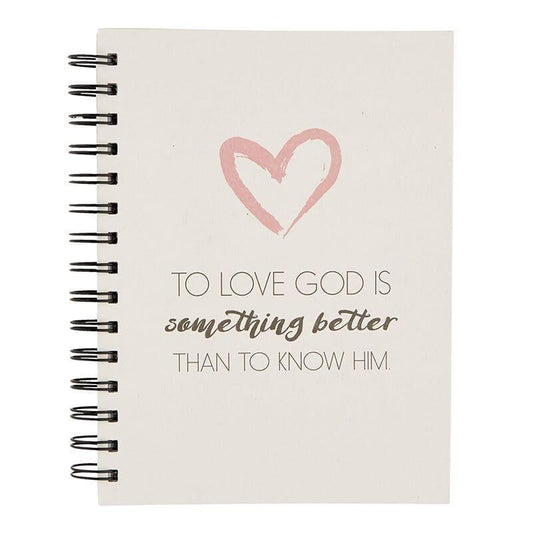 TO LOVE GOD IS
something better
THAN TO KNOW HIM.